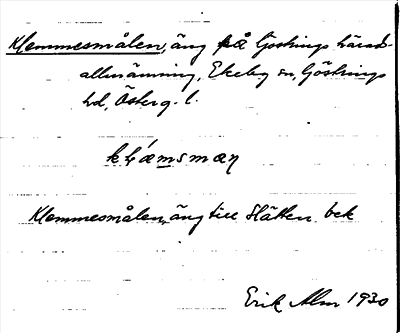 Klemmesmålen, äng på Göstrings härads-
allmänning, Ekeby sn, Göstrings
hd, Österg. l.
klæ̀msmæŋ
Klemmesmålen, äng till Slätten. bek
Erik Alm 1930